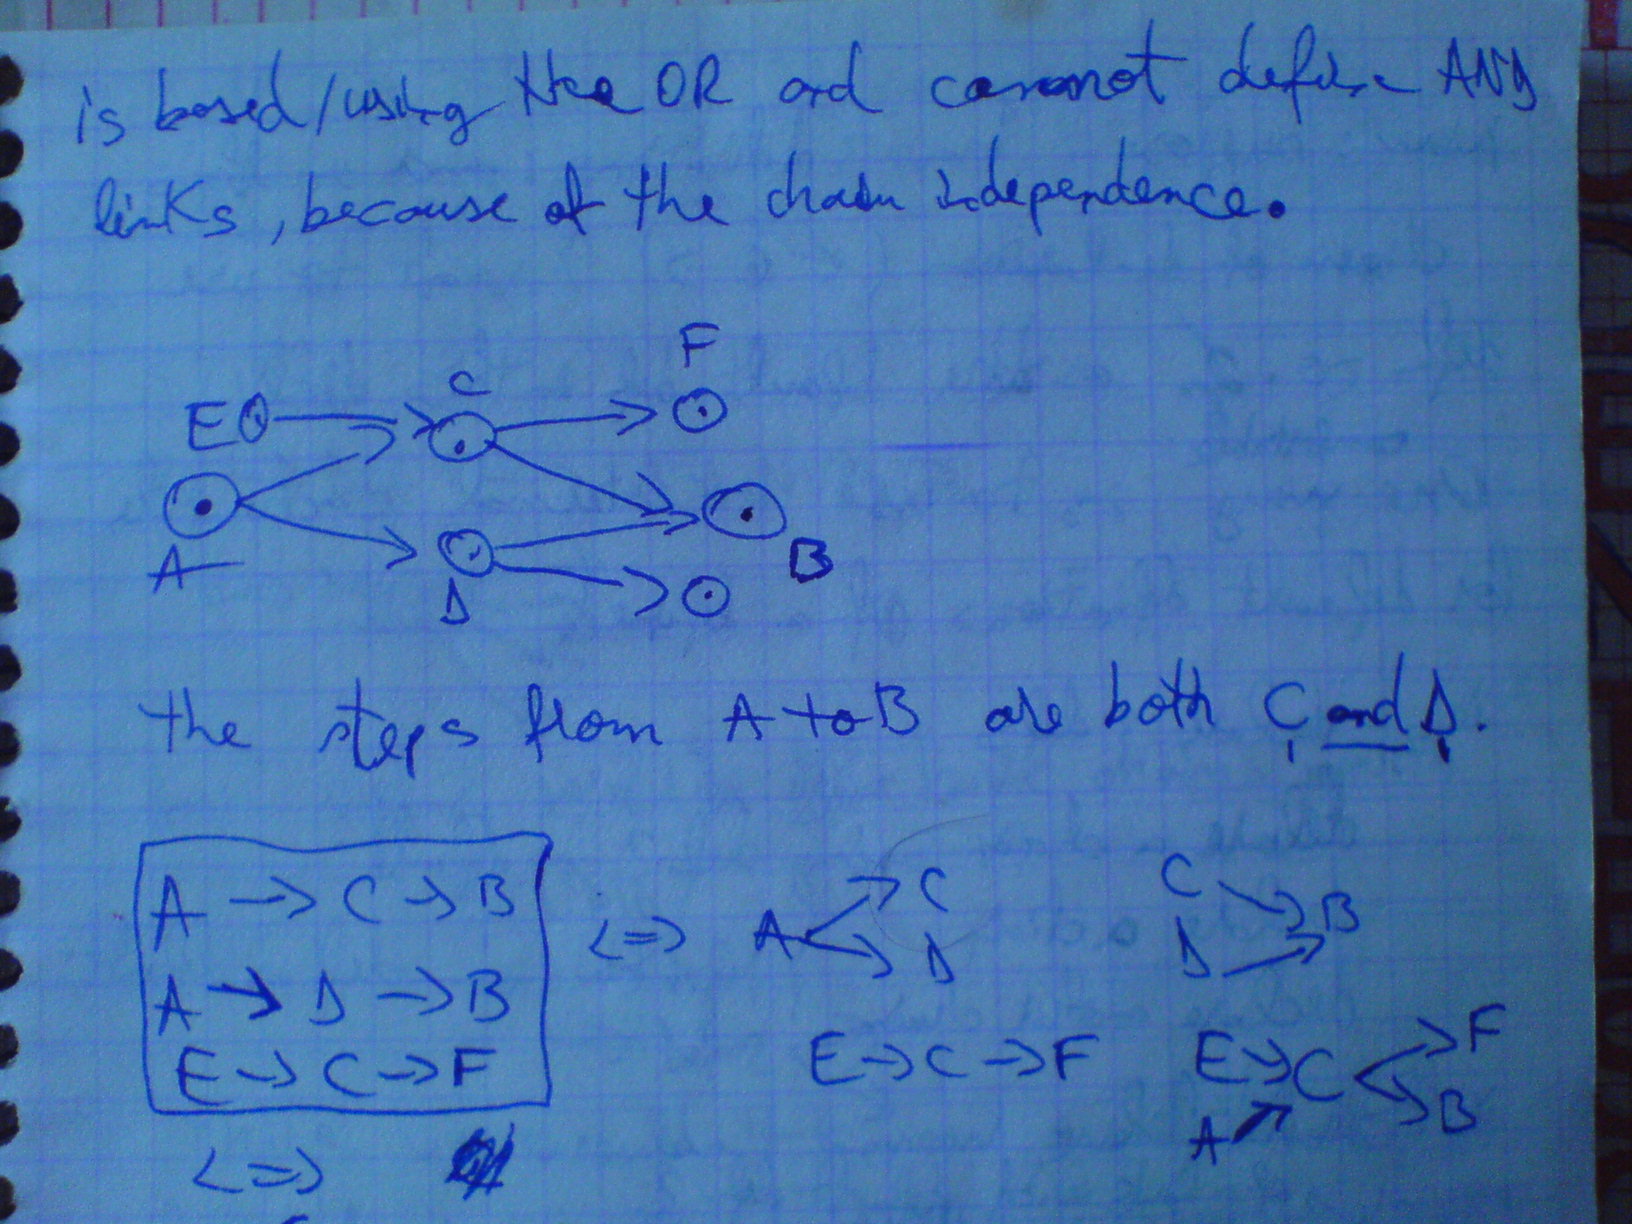 is based/using the OR and cannot define AND
links, because of the chain independence.
F
C
E
A
D
B
the steps from A to B are both C and D.
A → C → B <=> A → C C → B
A → D → B D D
E → C → F E → C → F E → C → F
A B
<=>